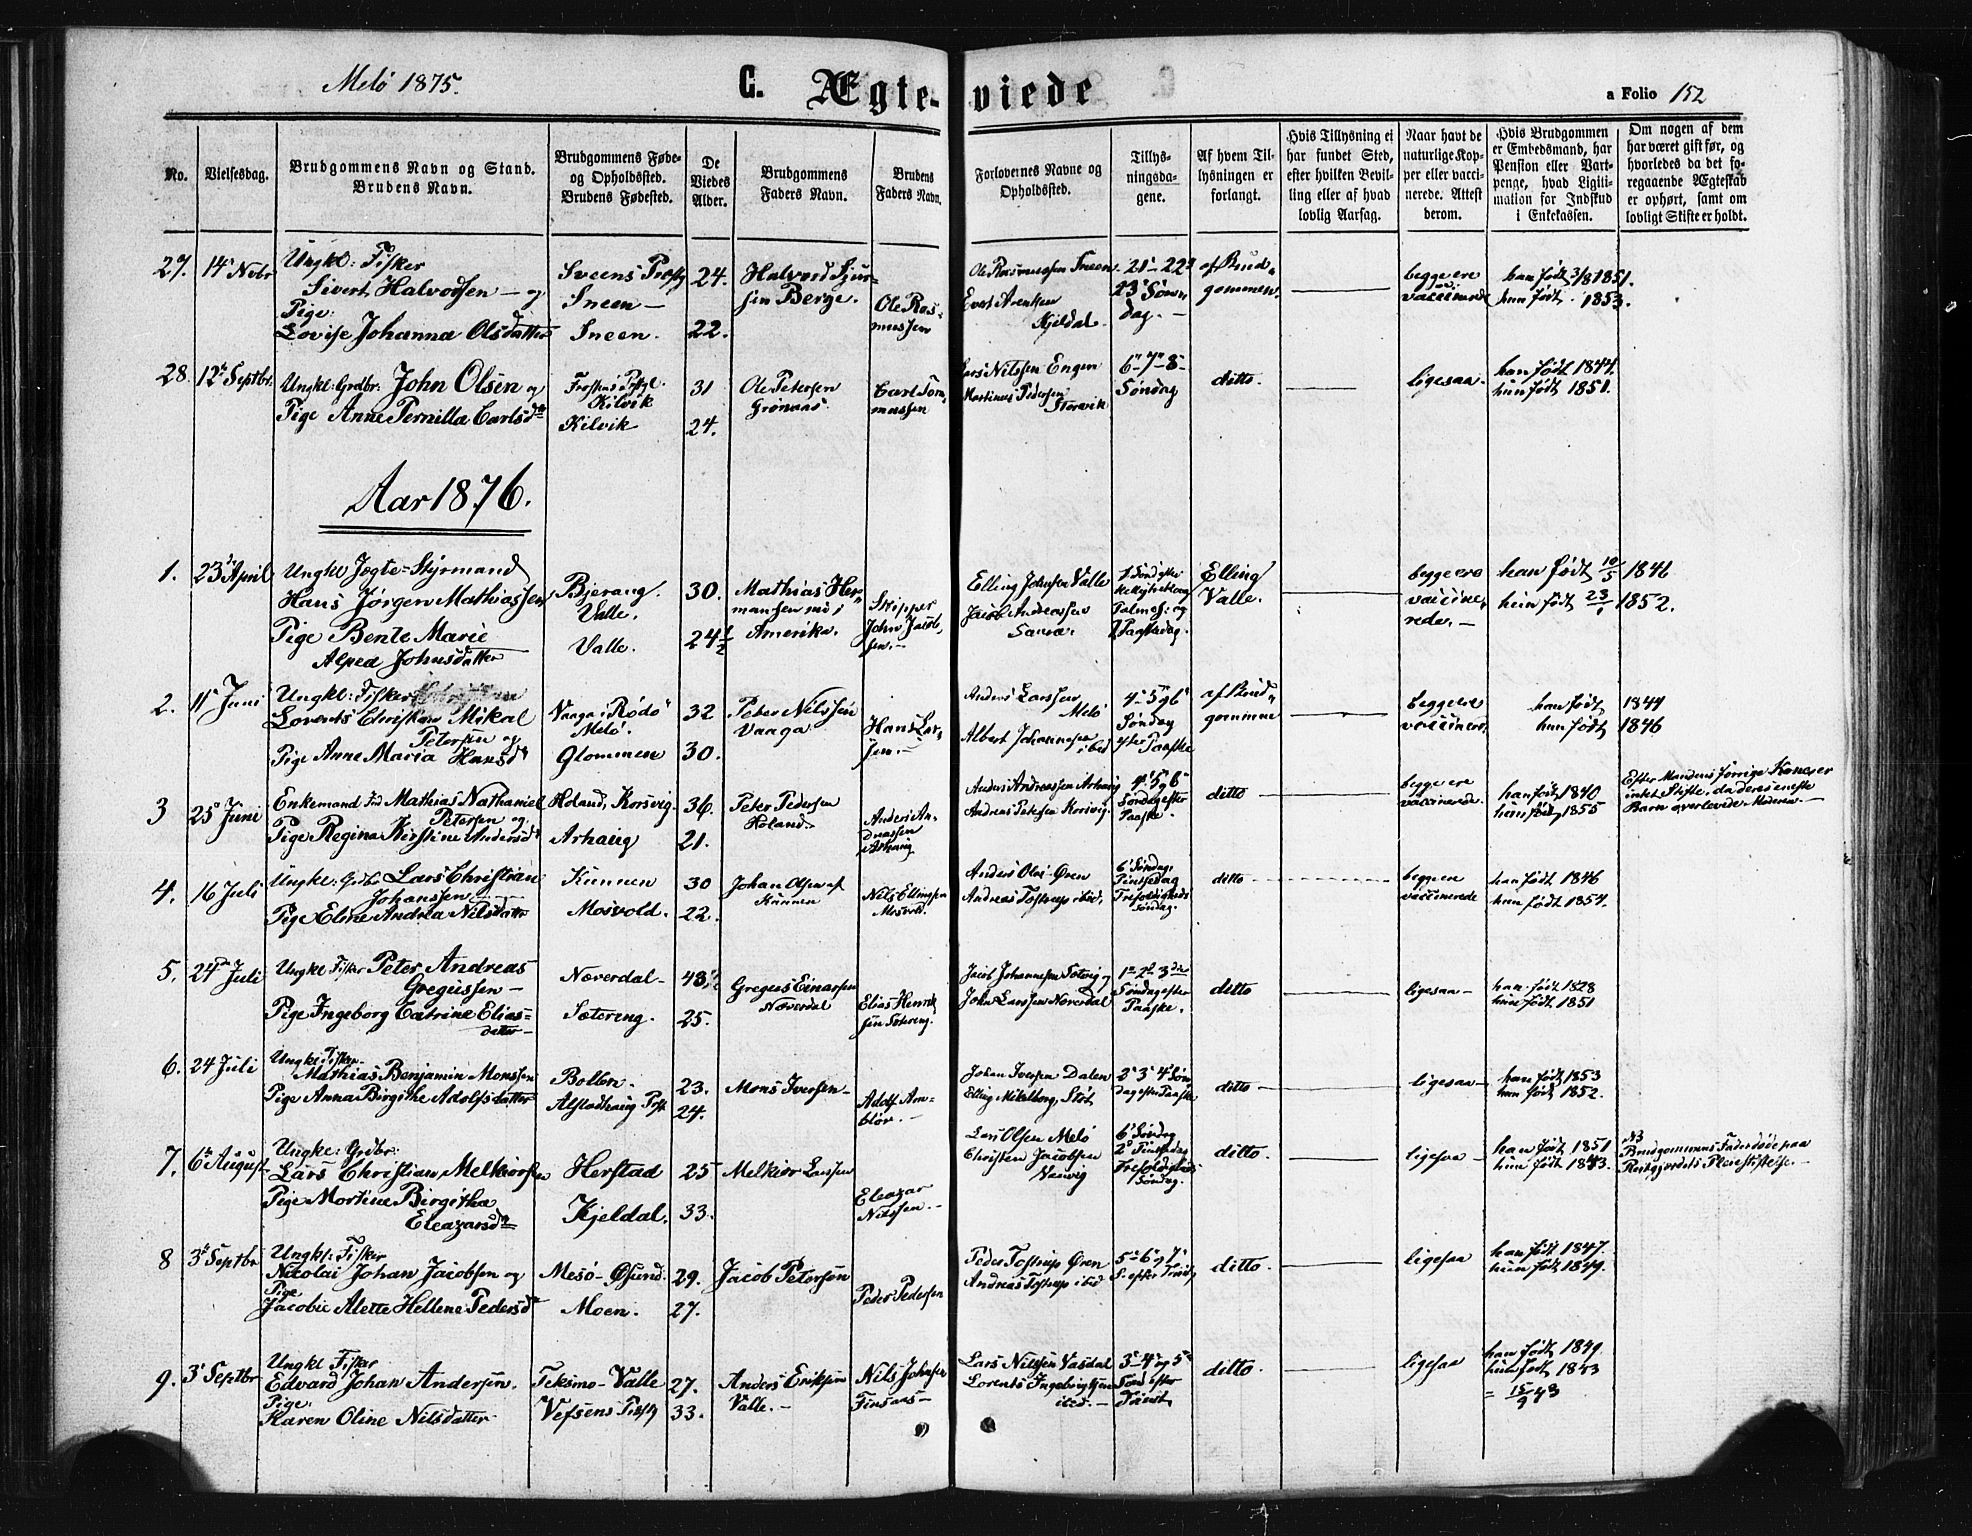 Melö 1875.
C. Ægte-viede
a Folio 152
No.
Vielsesdag.
Brudgommens Navn og Stand.
Brudens Navn.
Brudgommens Føde-
og Opholdssted.
Brudens Fødested.
De
Viedes
Alder.
Brudgommens
Faders Navn.
Brudens
Faders Navn.
Forlovernes Navne og
Opholdssted.
Tillys-
ningsda-
gene.
Af hvem Til-
lysningen er
forlangt.
Hvis Tillysning ei
har fundet Sted,
efter hvilken Bevil-
ling eller af hvad
lovlig Aarsag.
Naar havt de
naturlige Kop-
per eller vacci-
nerede. Attest
derom.
Hvis Brudgommen
er Embedsmand, har
Pension eller Vart-
penge, hvad Ligiti-
mation for Indskud
i Enkekassen.
Om nogen af dem
har været gift før, og
hvorledes da det fo-
regaaende Ægteskab
er ophørt, samt om
lovligt Skifte er holdt.
27.
14 Novbr
Ungkl: Fisker
Sivert Halvorsen — og
Pige:
Lovise Johanna Olsdatter
Sveens
Sneen —
Sneen.
24.
22.
Halvard Sjur-
sen Berge.
Ole Ras-
mussen
Ole Rasmussen Sneen.
Evert Arentsen
Kjeldal.
21 - 22
23 Søn-
dag. —
af Brud-
gommen.
begge ere
vaccinerede
han født 3/8 1851.
hun født 1853.
28.
12 Septbr.
Ungkl: Grdbr: John Olsen og
Pige Anne Pernilla Carlsd
Kilvik
Kilvik
31
24.
Ole Petersen
Grönaas
Carl Tom-
massen
Lars Nilssen Engen
Martinus Pedersen
Storvik
6 - 7 - 8
Søndag
ditto.
ligesaa.
han født 1844.
hun født 1851.
Aar 1876.
1.
23 April
Ungkl Jægte-Styrmand
Hans Jørgen Mathiassen
Pige Bente Marie
Alped Johnsdatter
Bjerang.
Valle.
Valle.
30.
24 1/2
Mathias Her-
mansen nu i
Amerika.
Skipper
John Jacob-
sen. —
Elling Johnsen Valle
Jacob Andreassen
Palmes: og
Elling
Valle.
begge ere
vaccine-
rede. —
han født 10/5 1846
hun født 23/1 1852.
2.
11 Juni
Ungkl: Fisker
Lorents Christian Mikal
Petersen og
Pige Anne Maria Hansd
Vaaga i Rödö
Melö.
Glommen
32
30.
Peter Nilssen
Vaaga
Hans Lar-
sen. —
Anders Larssen
Melö
Albert Johannesen
ibid
4 - 5 og 6
Søndag
efter Paaske
af Brud-
gommen
begge ere
vaccinerede
han født 1844
hun født 1846
3
25 Juni
Enkemand Mathias Nathaniel
Petersen og
Pige Regina Kirstine Andersd
Holand, Korsvig
Arhaug
36.
21.
Peter Pedersen
Holand.
Anders An-
dreassen
Arhaug
Anders Andreassen Arhaug
Andreas Petersen Korsvig.
4 5 og 6
Søndag efter
Paaske.
ditto
begge ere
vaccinerede.
han født 1840
hun født 1855
Efter Mandens forrige Kone er
intet Skifte, da deres eneste
Barn overlevede Moderen —
4.
16 Juli
Ungkl: Grdbr Lars Christian
Johanssen
Pige Eline Andrea Nilsdatter
Kunnen
Mosvold.
30
22.
Johan Olsen af
Kunnen
Nils Ellingsen
Mosvold.
Anders Olai Øren
Andreas Tostrup ibid.
6 Söndag.
Pintsedag
Trefoldigheds
Söndag.
ditto
begge ere
vaccinerede
han født 1846
hun født 1854.
5.
24 Juli
Ungkl Fisker Peter Andreas
Gregussen —
Pige Ingeborg Catrine Elias-
datter —
Næverdal —
Sætereng.
48 1/2
25.
Gregus Einarsen
Næverdal
Elias Henrik
sen Sætereng.
Jacob Johannesen Setvig og
John Larssen Næverdal
1 - 2 - 3
Søndag efter
Paaske.
ditto
ligesaa —
han født 1828
hun født 1851
6.
24 Juli
Ungkl Fisker
Mathias Benjamin Monssen
Pige Anna Birgithe Adolfsdatter
Bolten.
Alstadhaug
23.
24.
Mons Iversen —
Adolf Am-
blör. —
Johan Iversen Dalen
Elling Mikelborg, Støt
2 3 4 Søn
dag efter Paaske
ditto
ligesaa —
han født 1853
hun født 1852.
7.
6 August
Ungkl: Grdbr:
Lars Christian Melkiorsen
Pige Mortine Birgitha
Eleazarsd
Herstad
Kjeldal.
25
33.
Melkior Larssen
Eleazar
Nilssen. —
Lars Olsen Melö
Christen Jacobsen
Vasvig
6 Søndag
2 Pintsedag
Trefoldigheds
Søndag.
ditto.
ligesaa —
han født 1851
hun født 1843.
NB
Brudgommens Fader døde paa
Rødgjærdets Pleiestiftelse. —
8
3 Septbr
Ungkl: Fisker
Nicolai Johan Jacobsen og
Pige
Jacobie Alette Hellene Pedersd
Mesö - Øsund.
Moen.
29.
27.
Jacob Petersen
Peder Pedersen
Peder Tostrup Øren
Andreas Tostrup ibid
5 - 6 og 7
S. efter
ditto.
ligesaa
han født 1847.
hun født 1849.
9.
3 Septbr
Ungkl Fisker
Edvard Johan Andersen.
Pige:
Karen Oline Nilsdatter.
Teksmo - Valle
Vefsens
27.
33.
Anders Eriksen
Valle. —
Nils Johnsen
Finsaas —
Lars Nilssen Vasdal
Lorents Ingebrigtsen
ibid. —
3 - 4 og 5
Sønd efter
Trinit
ditto.
ligesaa
han født 1849.
hun født 1843
= 15/9 43